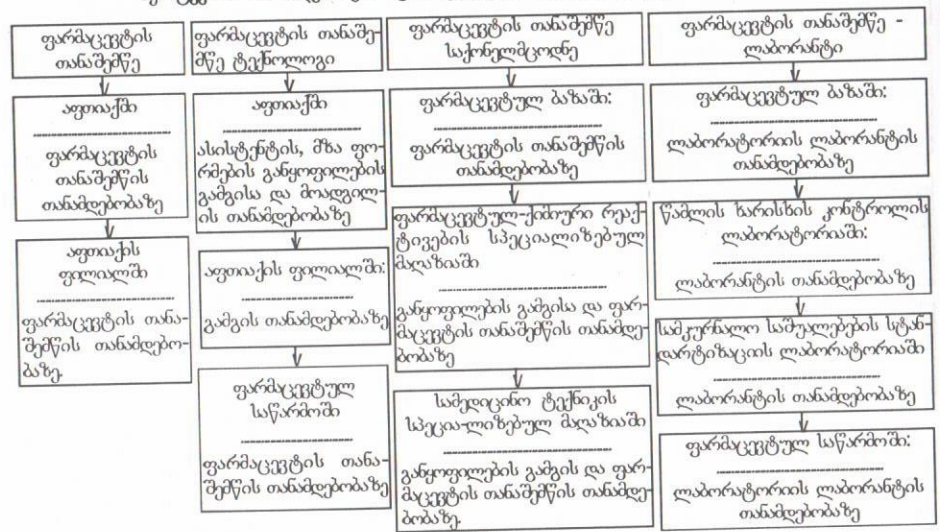 ფარმაცევტის
თანაშემწე
აფთიაქში
ფარმაცევტის
თანაშემწის
თანამდებობაზე
აფთიაქის
ფილიალში
ფარმაცევტის თანა-
შემწის თანამდებო-
ბაზე.
ფარმაცევტის თანაშე-
მწე ტექნოლოგი
აფთიაქში
ასისტენტის, მზა ფო-
რმების განყოფილების
გამგისა და მოადგილ-
ის თანამდებობაზე
აფთიაქის ფილიალში:
გამგის თანამდებობაზე
ფარმაცევტულ
საწარმოში
ფარმაცევტის თანა-
შემწის თანამდებობაზე
ფარმაცევტის თანაშემწე
საქონელმცოდნე
ფარმაცევტულ ბაზაში:
ფარმაცევტის თანაშემწის
თანამდებობაზე
ფარმაცევტულ-ქიმიური რეაქ-
ტივების სპეციალიზებულ
მაღაზიაში
განყოფილების გამგისა და ფარ-
მაცევტის თანაშემწის თანამდე-
ბობაზე
სამედიცინო ტექნიკის
სპეცია-ლიზებულ მაღაზიაში
განყოფილების გამგის და ფარ-
მაცევტის თანაშემწის თანამდე-
ბობაზე.
ფარმაცევტის თანაშემწე -
ლაბორანტი
ფარმაცევტულ ბაზაში:
ლაბორატორიის ლაბორანტის
თანამდებობაზე
წამლის ხარისხის კონტროლის
ლაბორატორიაში:
ლაბორანტის თანამდებობაზე
სამკურნალო საშუალებების სტან-
დარტიზაციის ლაბორატორიაში
ლაბორანტის თანამდებობაზე
ფარმაცევტულ საწარმოში:
ლაბორატორიის ლაბორანტის
თანამდებობაზე